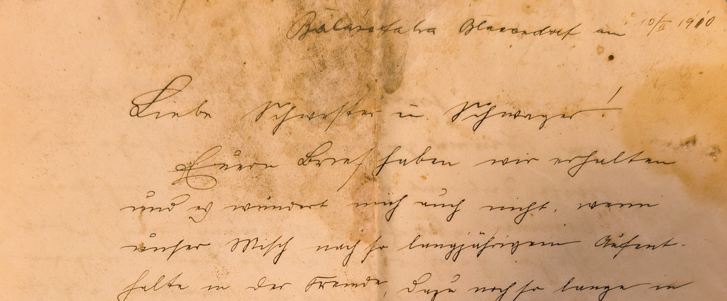 am 10/II 1910
Liebe Schwester u. Schwager!
Euern Brief haben wir erhalten
und es wundert mich auch nicht, wenn
unser Misch nach so langjährigem Aufent-
halte in der Fremde, dazu noch so lange in